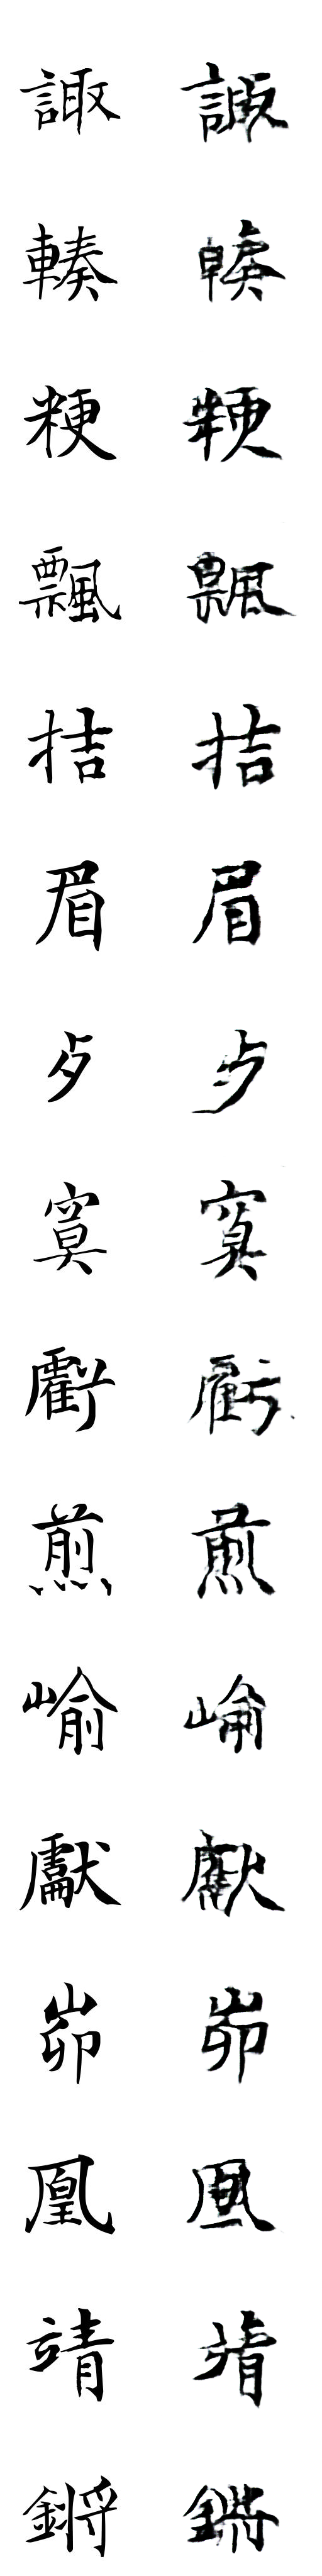 諏 諏
輳 輳
粳 粳
飄 飄
拮 拮
眉 眉
歺 歺
寞 寞
虧 虧
煎 煎
崳 崳
獻 獻
峁 峁
凰 凰
靖 靖
鏘 鏘